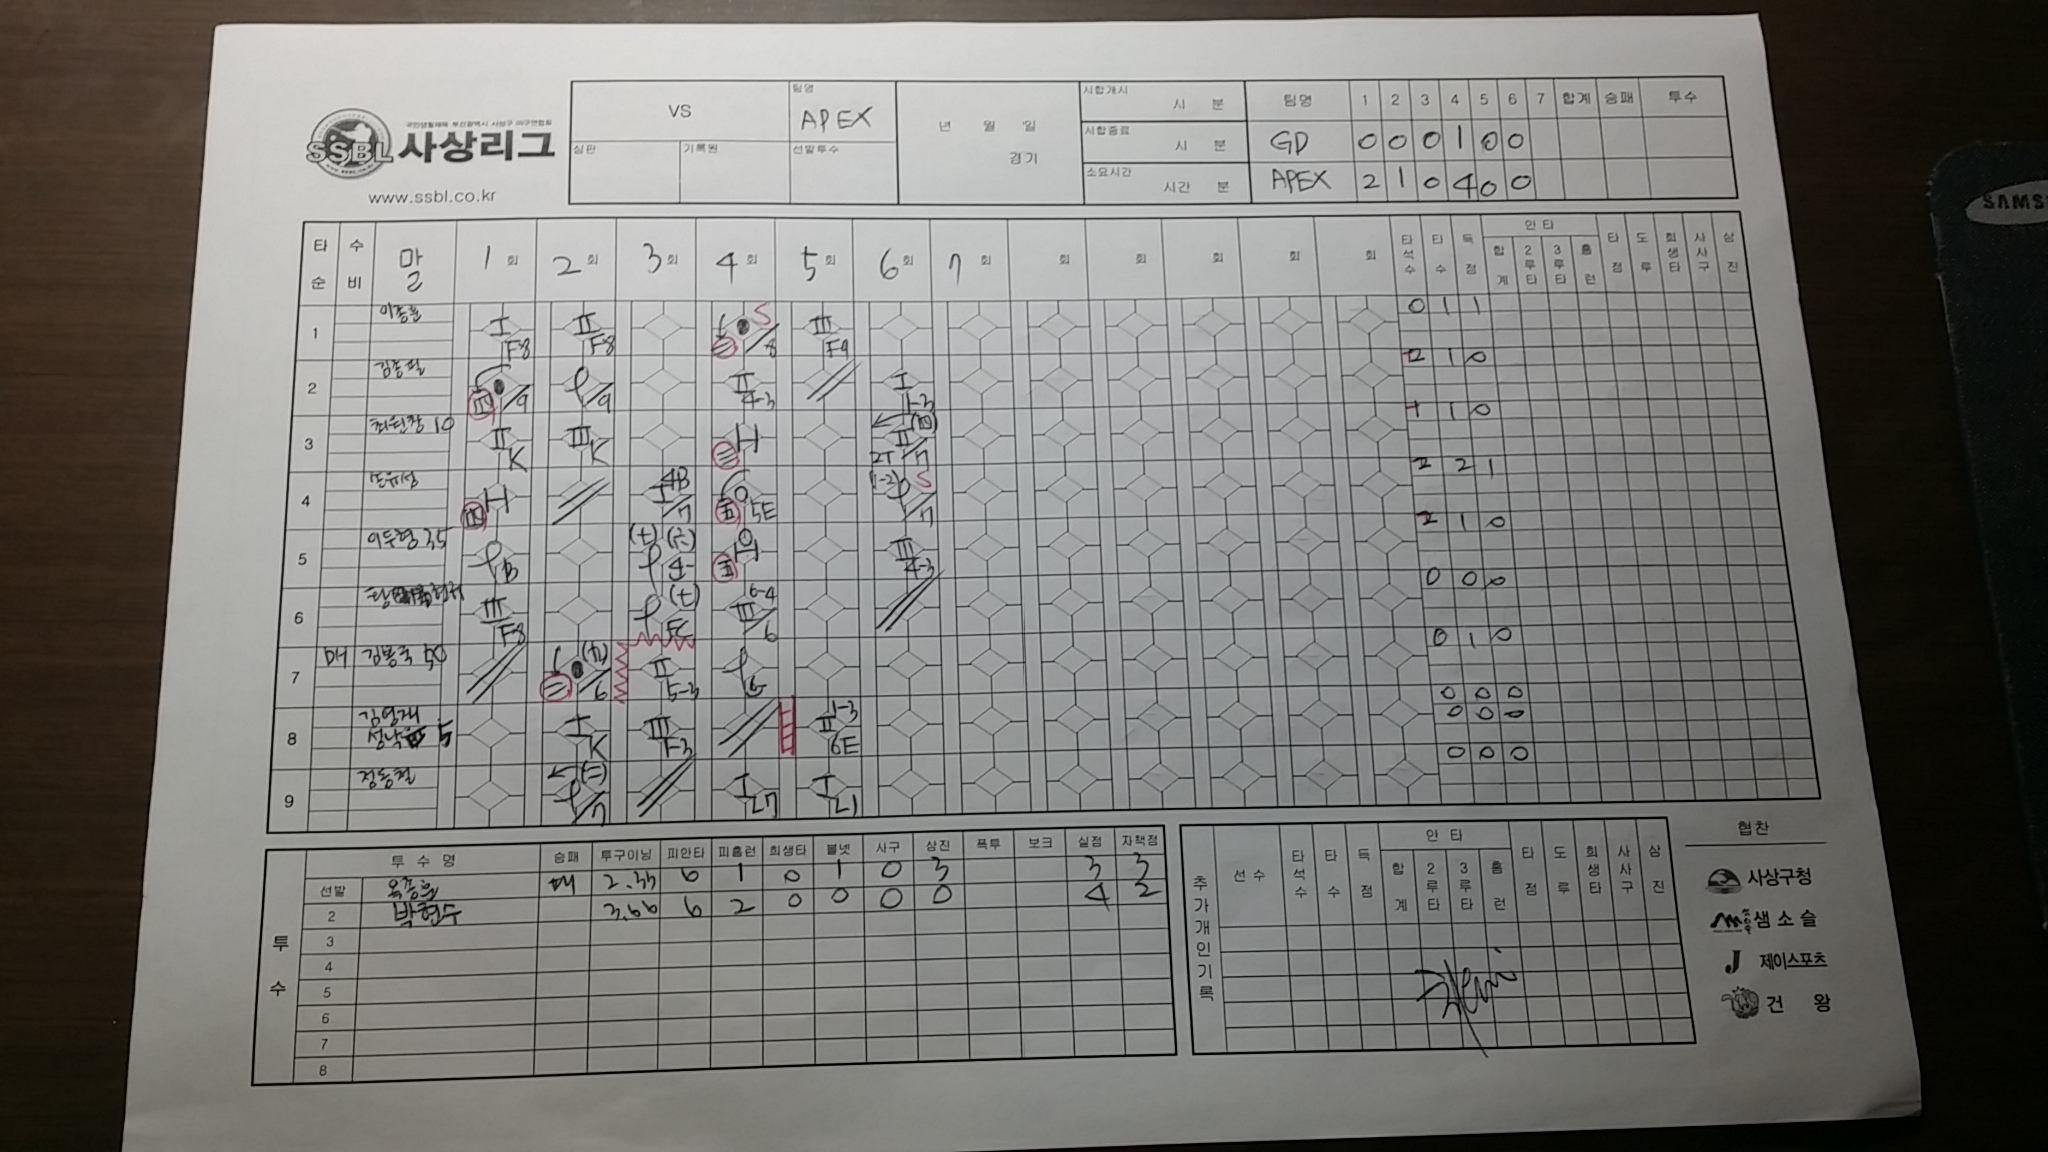 국민생활체육 부산광역시 사상구 야구연합회
SSBL 사상리그
www.ssbl.co.kr
VS
팀명
APEX
심판
기록원
선발투수
년 월 일
경기
시합개시
시 분
시합종료
시 분
소요시간
시간 분
팀명 1 2 3 4 5 6 7 합계 승패 투수
GD 0 0 0 1 0 0
APEX 2 1 0 4 0 0
타순 수비 말 1회 2회 3회 4회 5회 6회 7회 회 회 회 회 회 타석수 타수 득점 안타 합계 2루타 3루타 홈런 타점 도루 희생타 사사구 삼진
1 I F8 II F8 S 8 III F9 0 1 1
2 9 9 II 4-3 I 1-3 2 1 0
3 10 II K III K H II 2T 7 1 1 0
4 H I 4B 7 5E (1-2) S 7 2 2 1
5 B H III 4-3 2 1 0
6 III F8 III 6-4 6 0 0 0
7 김봉국 50 6 II 5-3 0 1 0
8 김영재 I K III II 1-3 6E 0 0 0
5 0 0 0
9 정동철 7 I L7 I L1 0 0 0
투수
투수명 승패 투구이닝 피안타 피홈런 희생타 볼넷 사구 삼진 폭투 보크 실점 자책점
선발 2.33 6 1 0 1 0 3 3 3
2 박현수 3.66 6 2 0 0 0 0 4 2
3
4
5
6
7
8
추가개인기록
선수 타석수 타수 득점 안타 합계 2루타 3루타 홈런 타점 도루 희생타 사사구 삼진
협찬
사상구청
샘소슬
J 제이스포츠
건왕
SAMS